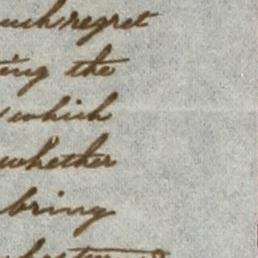 much regret
ting the
which
whether
bring